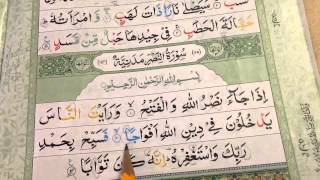 كَسَبَ سَيَصْلٰى نَارًا ذَاتَ لَهَبٍ وَّامْرَاَتُهٗ
حَمَّالَةَ الْحَطَبِ فِيْ جِيْدِهَا حَبْلٌ مِّنْ مَّسَدٍ
سُوْرَةُ النَّصْرِ مَدَنِيَّةٌ
بِسْمِ اللهِ الرَّحْمٰنِ الرَّحِيْمِ
اِذَا جَآءَ نَصْرُ اللهِ وَالْفَتْحُ وَرَاَيْتَ النَّاسَ
يَدْخُلُوْنَ فِيْ دِيْنِ اللهِ اَفْوَاجًا فَسَبِّحْ بِحَمْدِ
رَبِّكَ وَاسْتَغْفِرْهُ اِنَّهٗ كَانَ تَوَّابًا